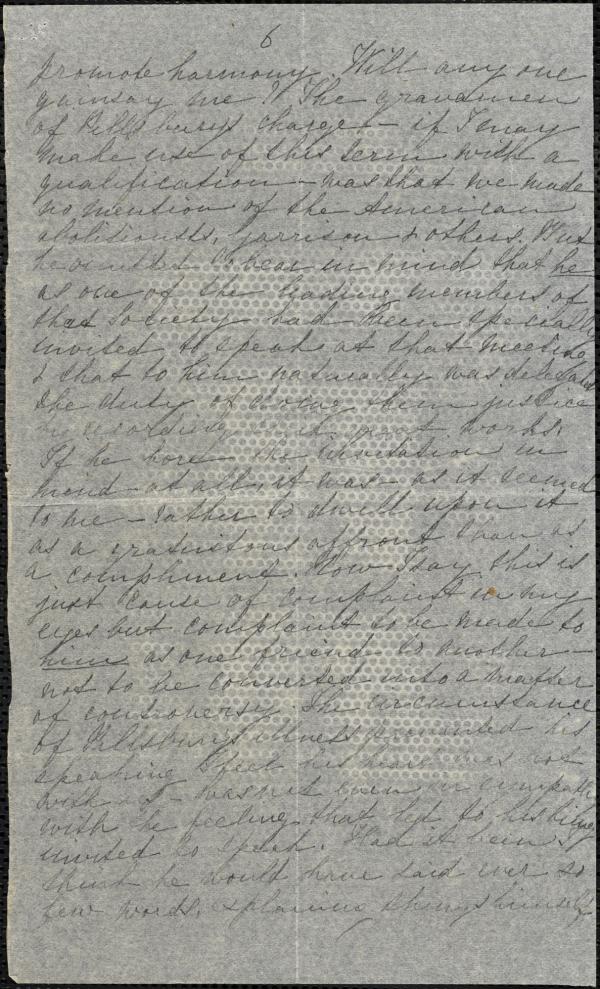 6
promote harmony. Will any one
gainsay me? The gravamen
of Pillsbury's charge - if I may
make use of this term with a
qualification - was that we made
no mention of the American
abolitionists, Garrison & others. But
he omitted to bear in mind that he
as one of the leading members of
that Society had been specially
invited to speak at that meeting
& that to him naturally was
the duty of doing them justice
by recording their great works.
If he bore the invitation in
mind - at all, it was - as it seemed
to me - rather to dwell upon it
as a gratuitous affront than as
a compliment. Now I say this is
just cause of complaint in my
eyes but complaint to be made to
him as one friend to another -
not to be converted into a matter
of controversy. The circumstance
of Pillsbury's illness prevented his
speaking I feel his heart was not
with us - was not even in sympathy
with the feeling that led to his being
invited to speak. Had it been I
think he would have said ever so
few words, explaining things himself